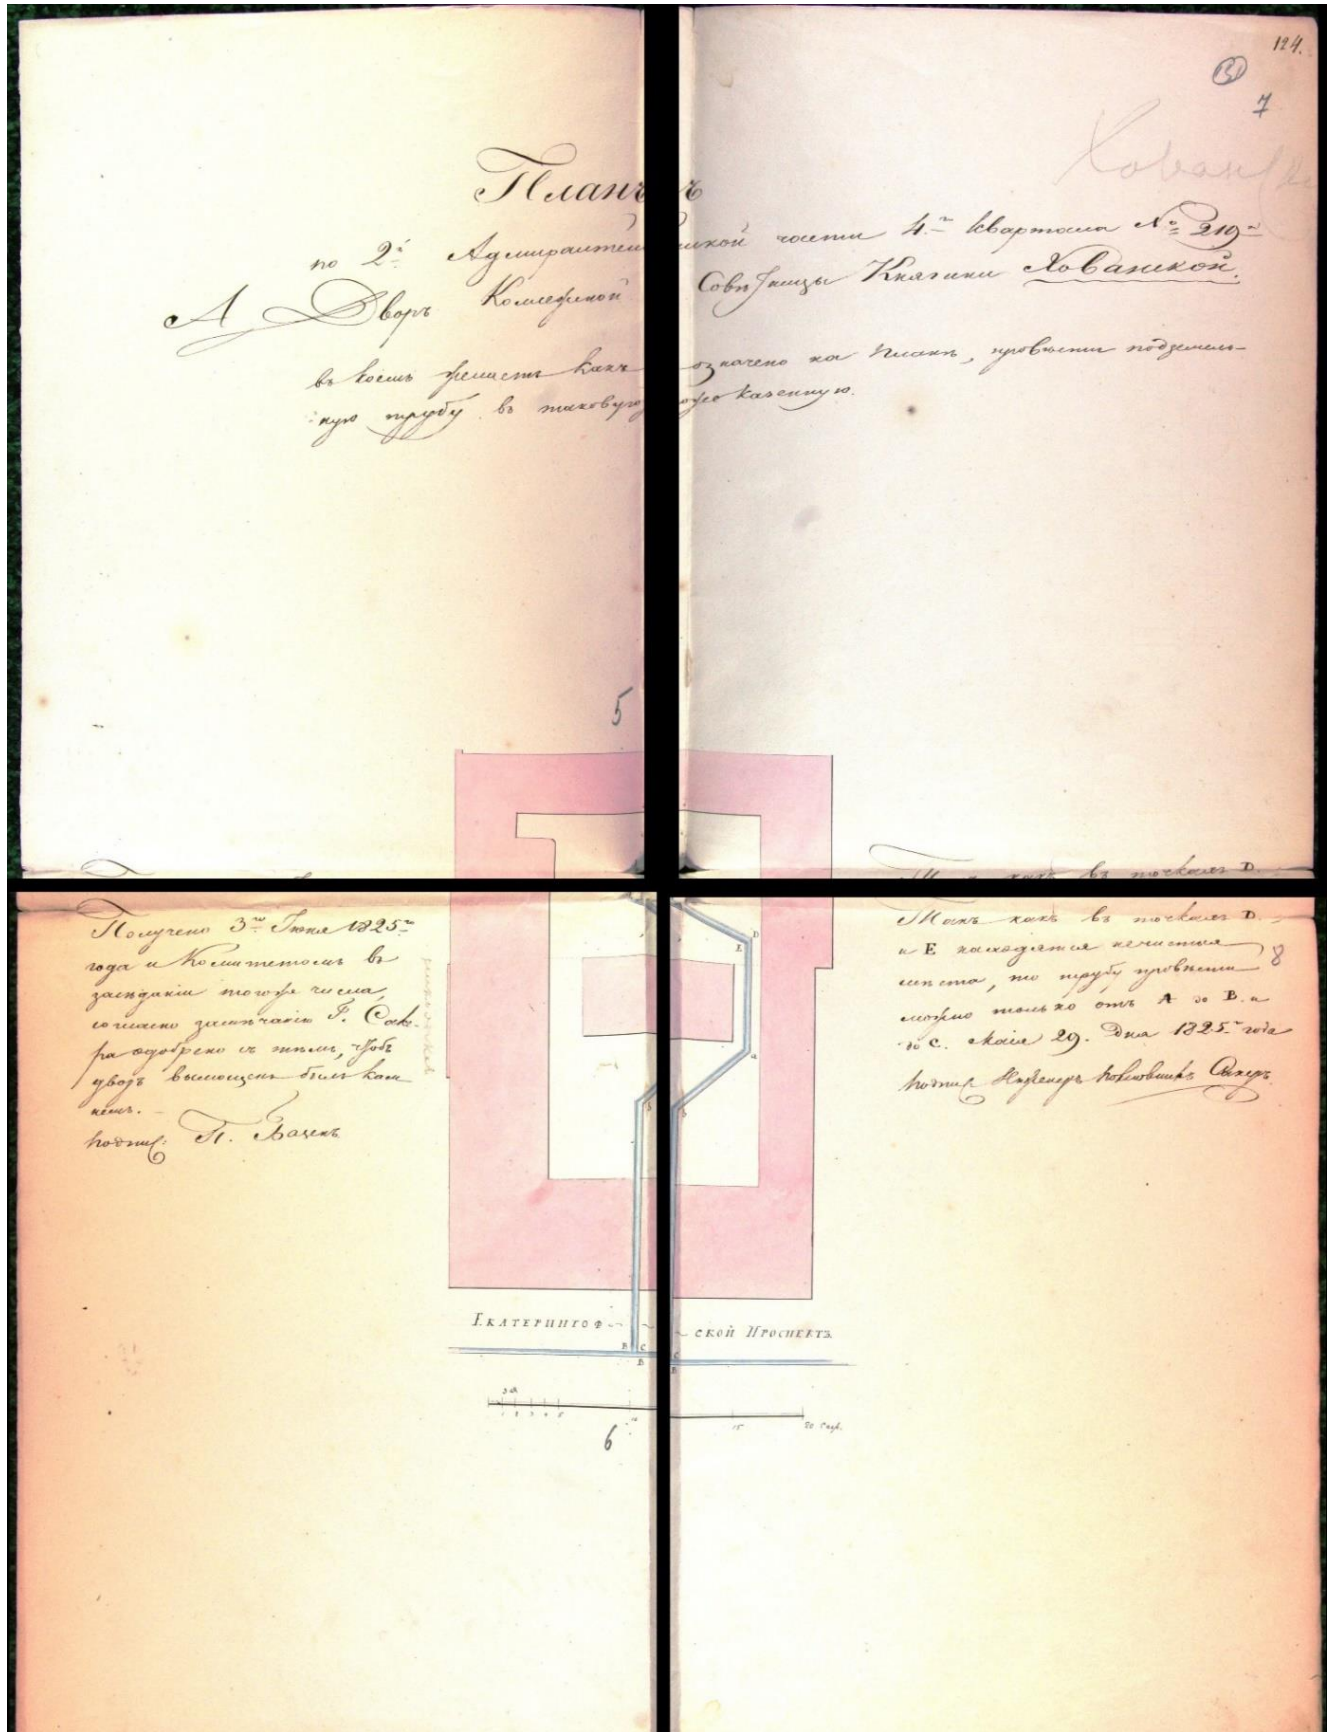 124.
7
Хован
Планъ
по 2й Адмиралтейской части 4го квартала № 219го
А Дворъ Коллежской Совѣтницы Княгини Хованской.
въ коемъ желаетъ какъ означено на планѣ, провѣсти подземель-
ную трубу въ таковую же казенную.
5
Получено 3го Іюня 1825го
года и Комитетомъ въ
засѣданіи тогоже числа,
согласно замѣчанію Г. Саке-
ра одобрено съ тѣмъ, чтобъ
дворъ вымощенъ былъ кам
немъ.
подпис: П. Базенъ
Такъ какъ въ точкахъ D.
и E находятся нечистыя
мѣста, то трубу провѣсти
можно только отъ A до B. и
до C. Маія 29. Дня 1825го года
подпис: Инженеръ Полковникъ Сакеръ
8
D
E
ЕКАТЕРИНГОФ
СКОЙ ПРОСПЕКТЪ
B C
B
C
B
1 2 3 4 5
10
15
20 Саж.
6